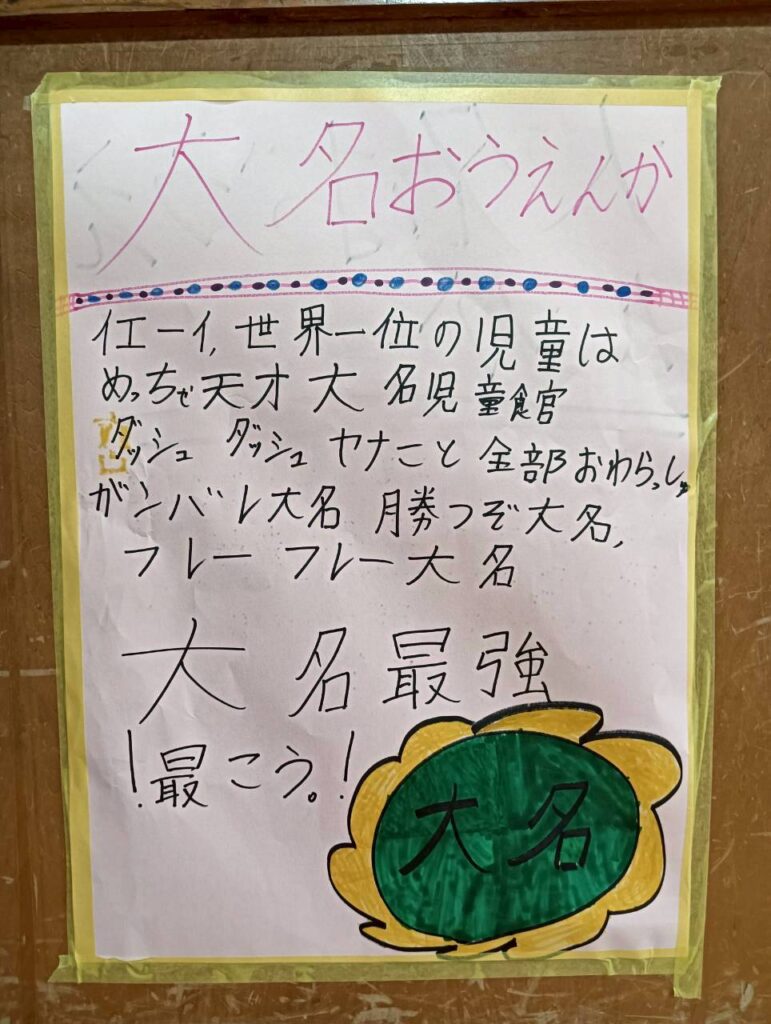 大名おうえんか
イエーイ,世界一位の児童は
めっちゃ天才大名児童館
ダッシュ ダッシュ ヤナこと全部おわらっしゅ
ガンバレ大名 勝つぞ大名,
フレー フレー大名
大名最強
!最こう。!
大名